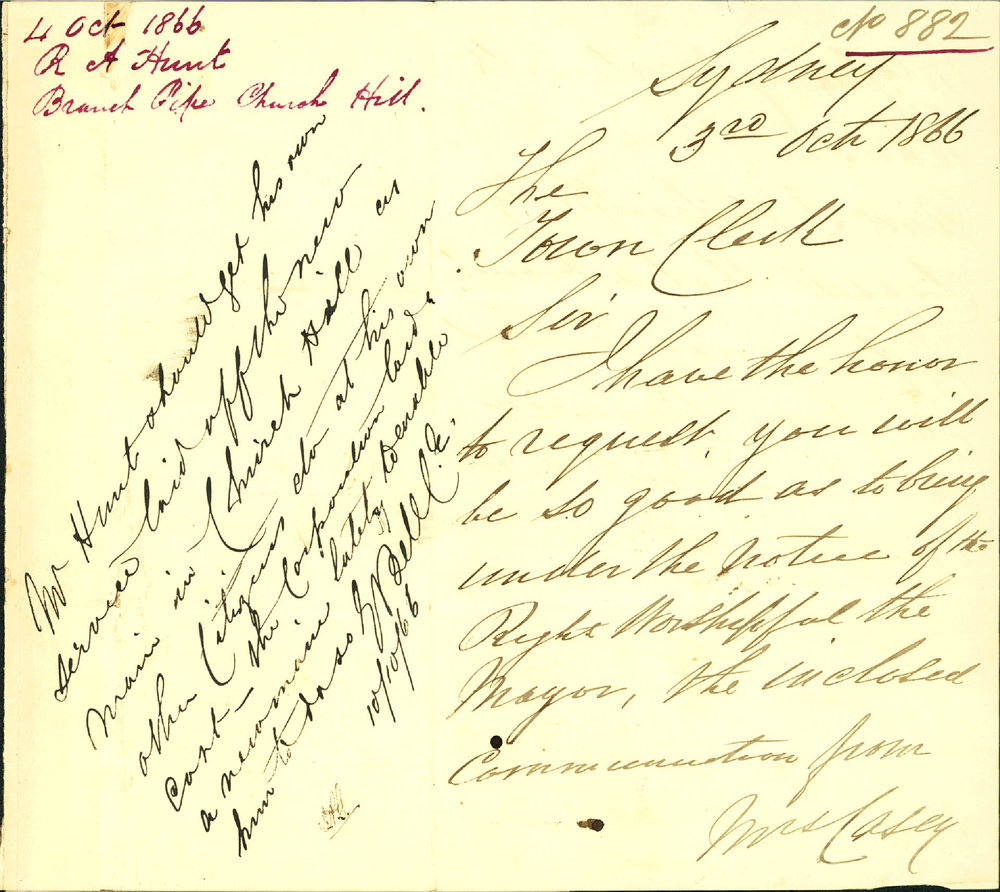 4 Oct 1866
R A Hunt
Branch Pipe Church Hill.
Mr Hunt should get his own
service laid off the new
main in Church Hill as
other Citizens do at his own
cost - the Corporation laid
a new main lately to enable
him to do so E Bell C.E.
10/10/66
No 882
Sydney
3rd Oct 1866
The
Town Clerk
Sir
I have the honor
to request, you will
be so good as to bring
under the notice of the
Right Worshipful the
Mayor, the inclosed
Communication from
Mrs Casey